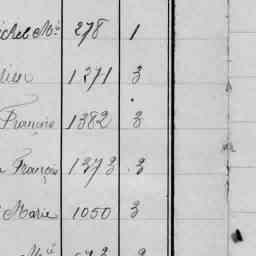 ichel Mie 278 1
lien 1371 3
François 1382 3
François 1373 3
Marie 1050 3